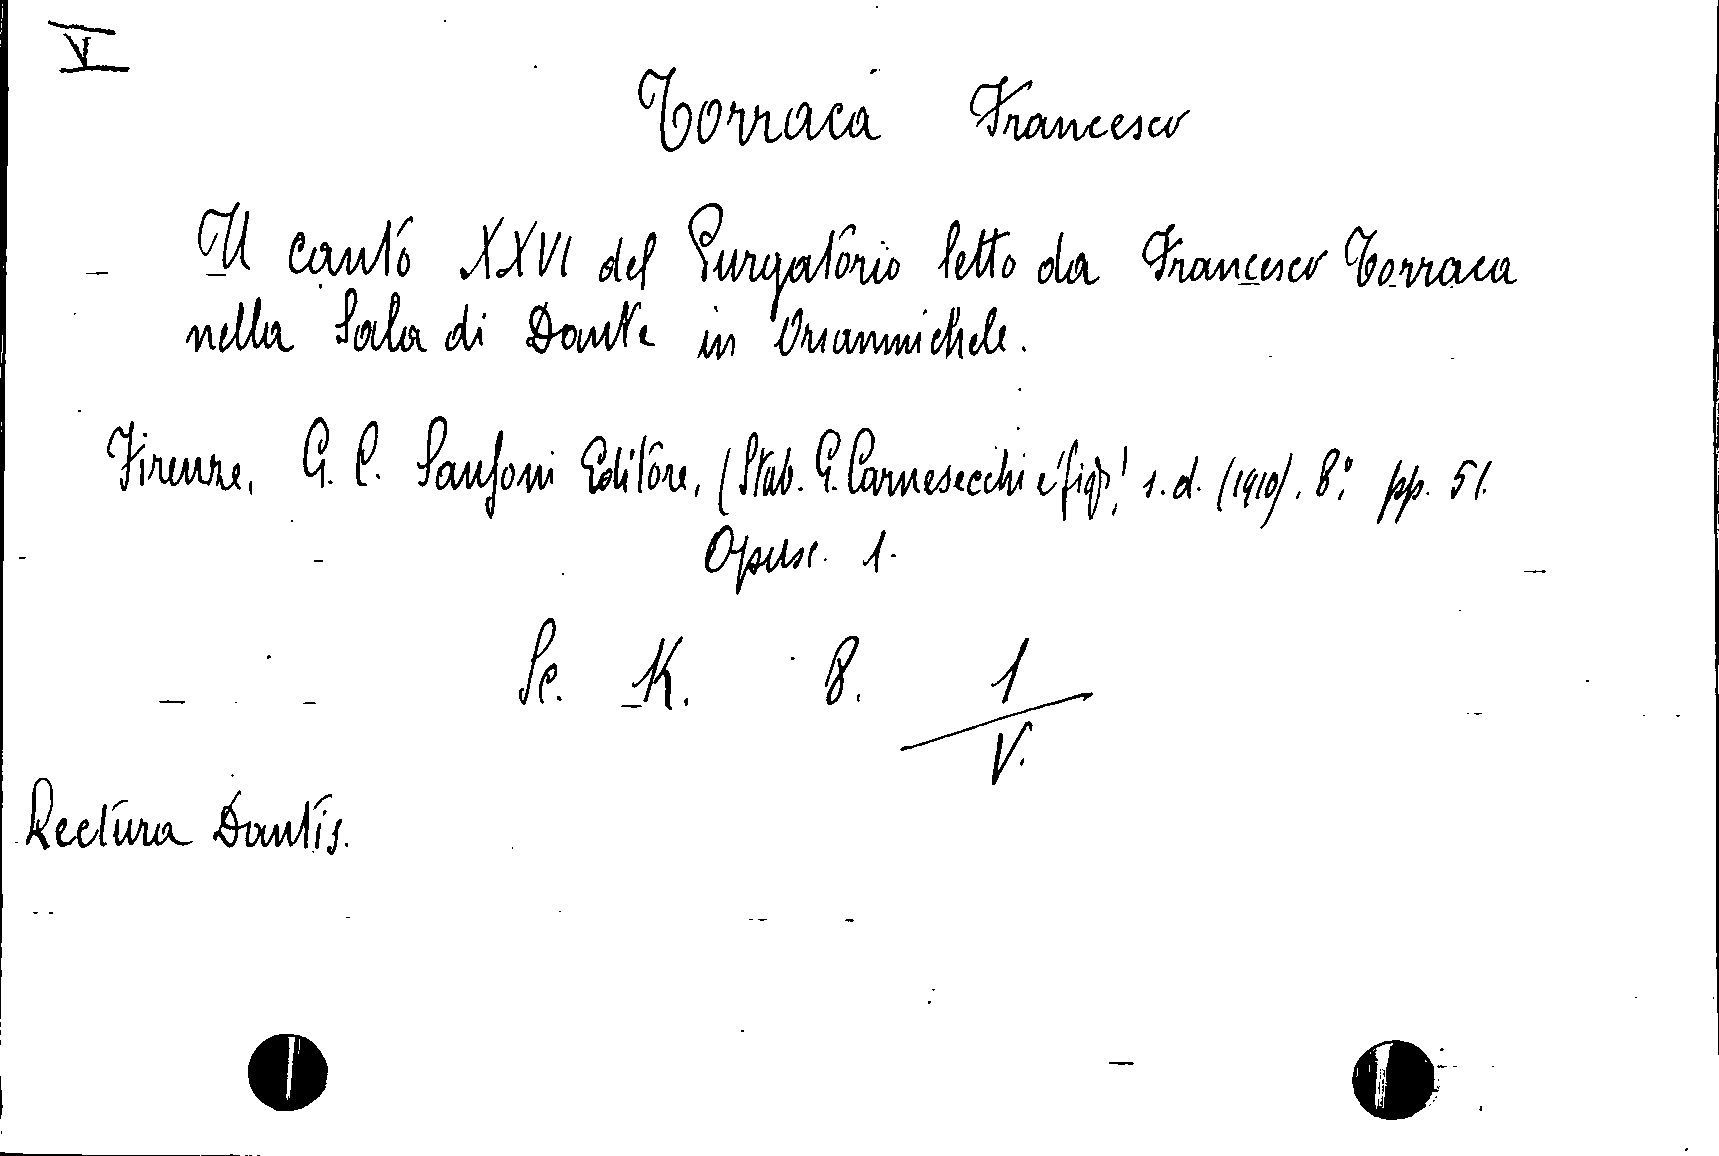 V
Torraca Francesco
Il canto XXVI del Purgatorio letto da Francesco Torraca
nella Sala di Dante in Orsanmichele.
Firenze, G. C. Sansoni Editore, (Stab. G. Carnesecchi e figli) s.d. (1910). 8.° pp. 51.
Opusc. 1.
Sc. K. 8. 1
V.
Lectura Dantis.